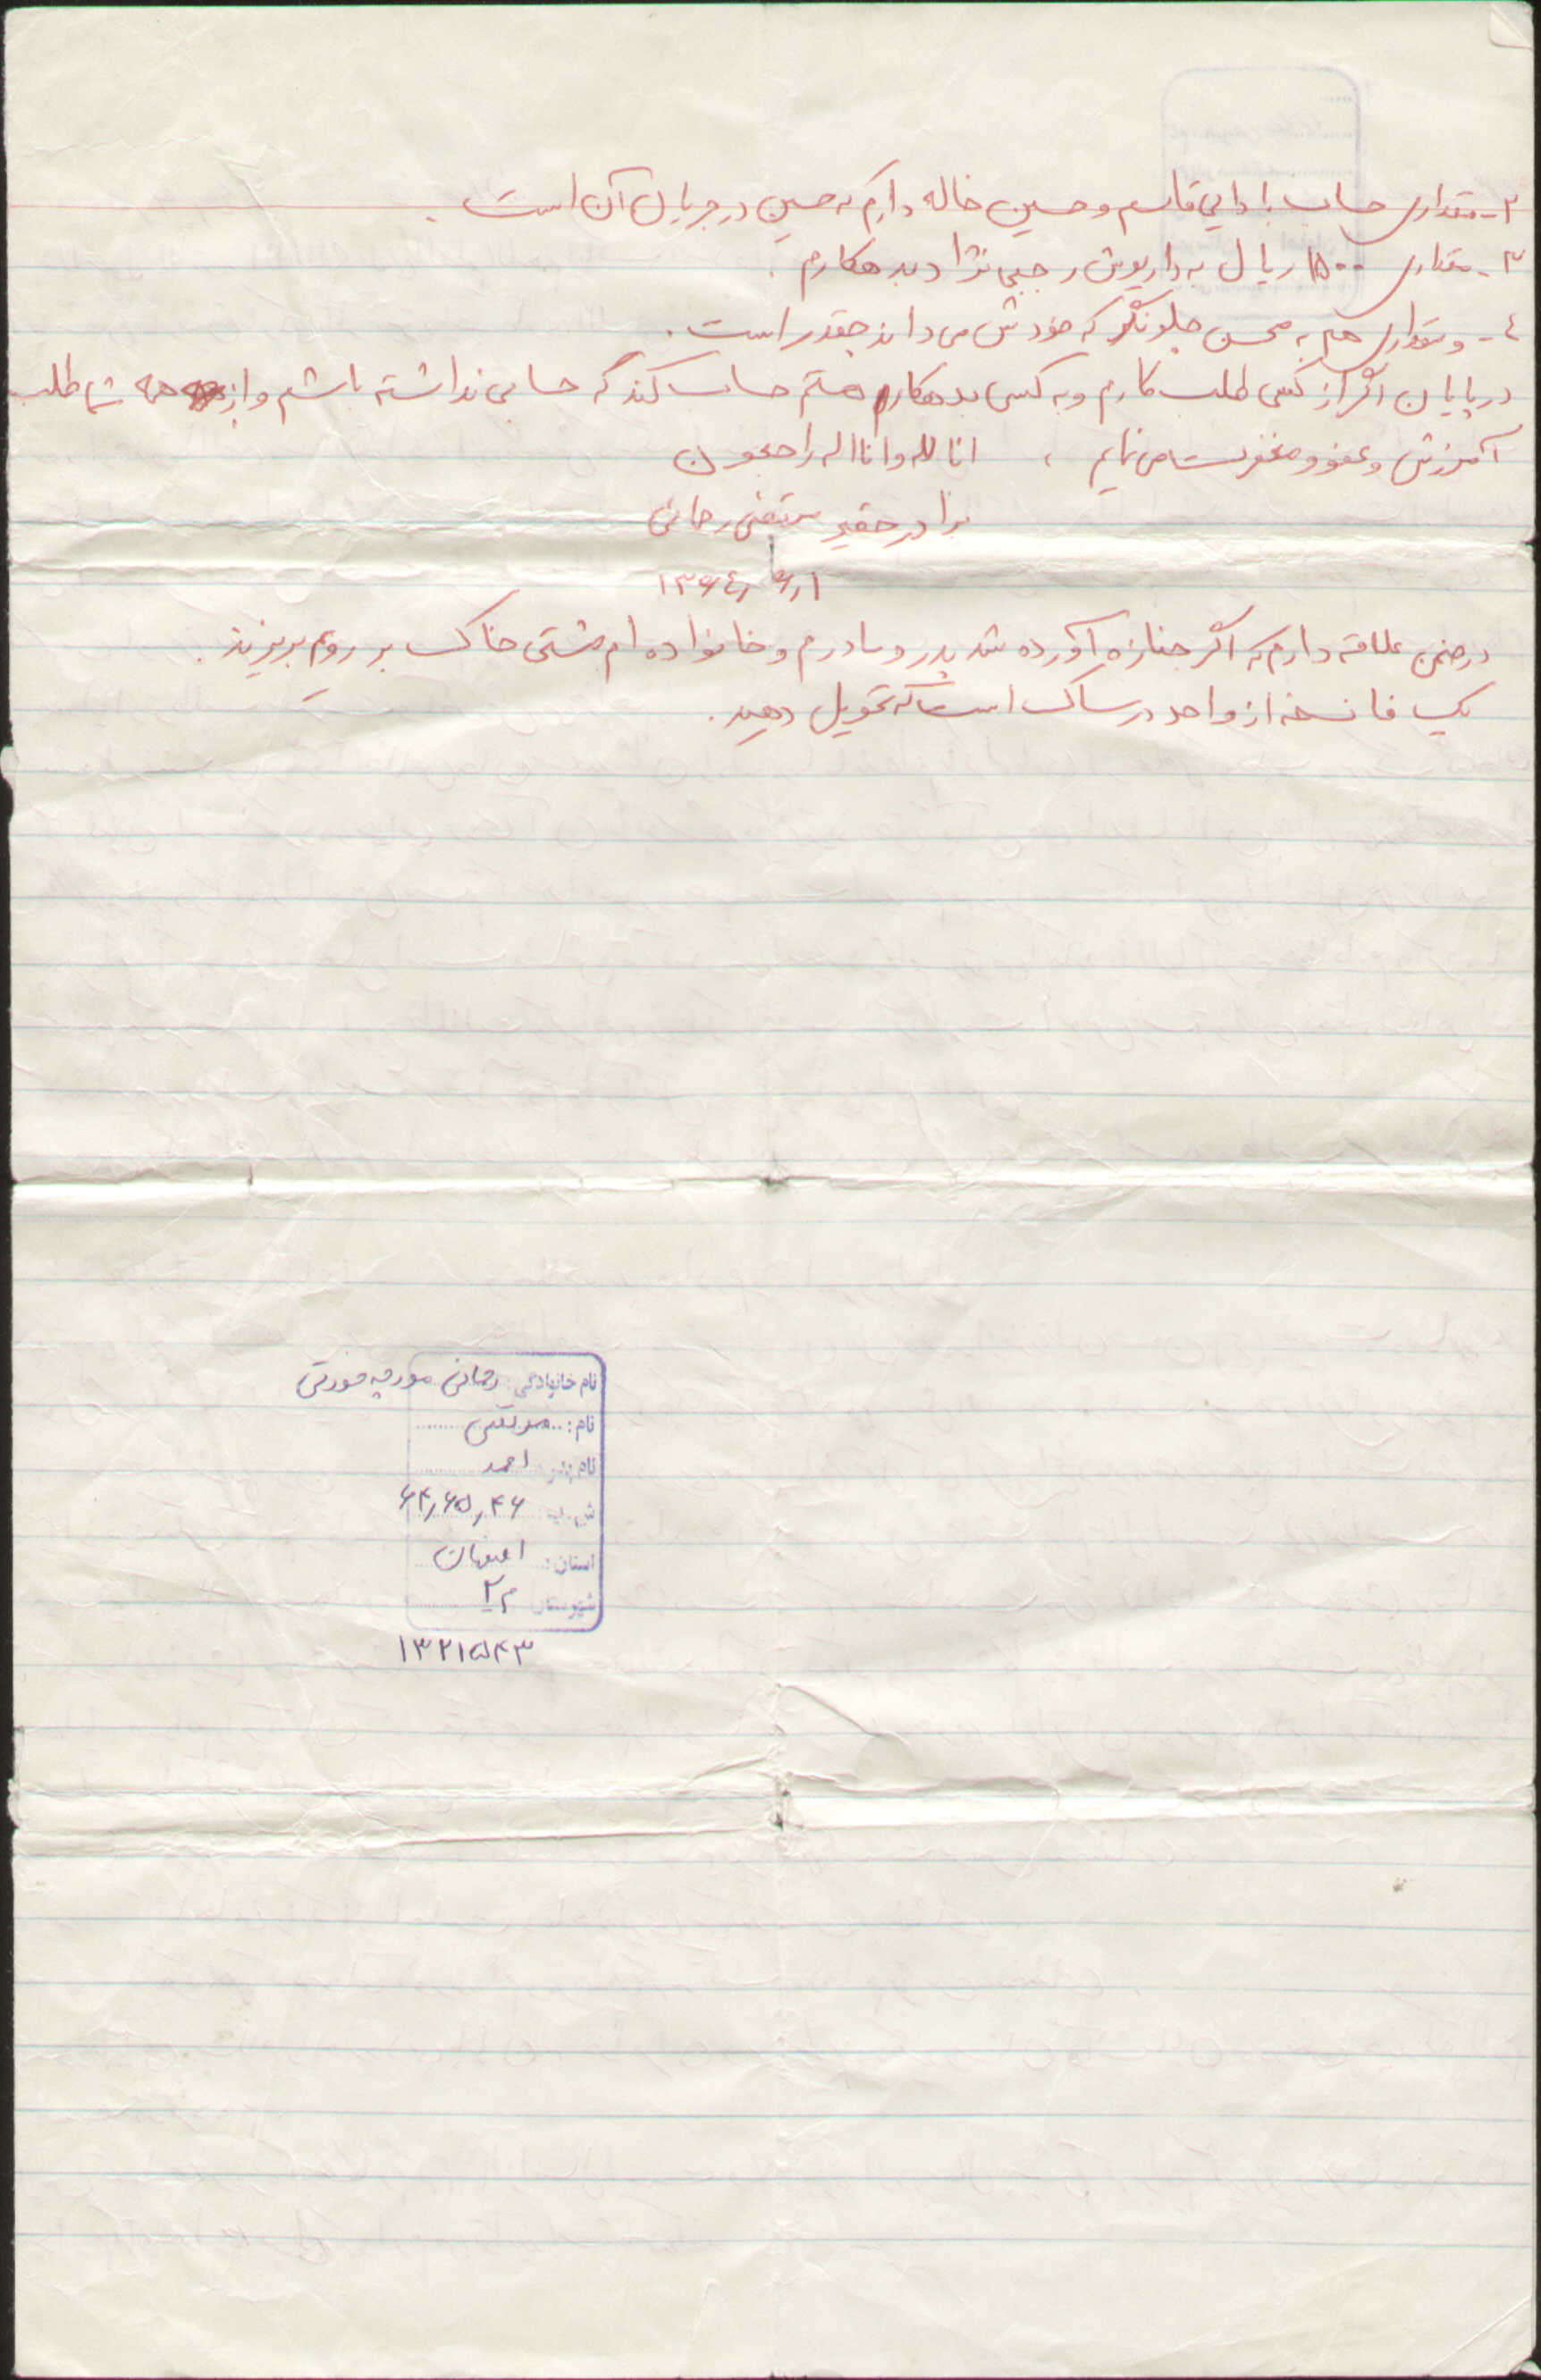 ۲- مقداری حساب با دایی قاسم و حسین خاله دارم که حسین در جریان آن است.
۳- مقداری ۱۵۰۰ ریال به داریوش رجبی نژاد بدهکارم.
٤- و مقداری هم به محسن جلونگر که خودش می داند چقدر است.
در پایان اگر از کسی طلب کارم و به کسی بدهکار هستم حساب کند که حسابی نداشته باشم و از همه شما طلب
آمرزش و عفو و مغفرت می نمایم ، انا لله و انا الیه راجعون
برادر حقیر مرتضی رحمانی
۱۳۶٤/۶/۱
در ضمن علاقه دارم که اگر جنازه آورده شد پدر و مادرم و خانواده ام مشتی خاک بر رویم بریزند.
یک فانسخه از واحد در ساک است که تحویل دهید.
نام خانوادگی: رحمانی مورچه خورتی
نام: مرتضی
نام پدر: احمد
ش.پ ۶۴٫۶۵٫۴۶
استان: اصفهان
شهرستان م۲
۱۳۲۱۵۴۳